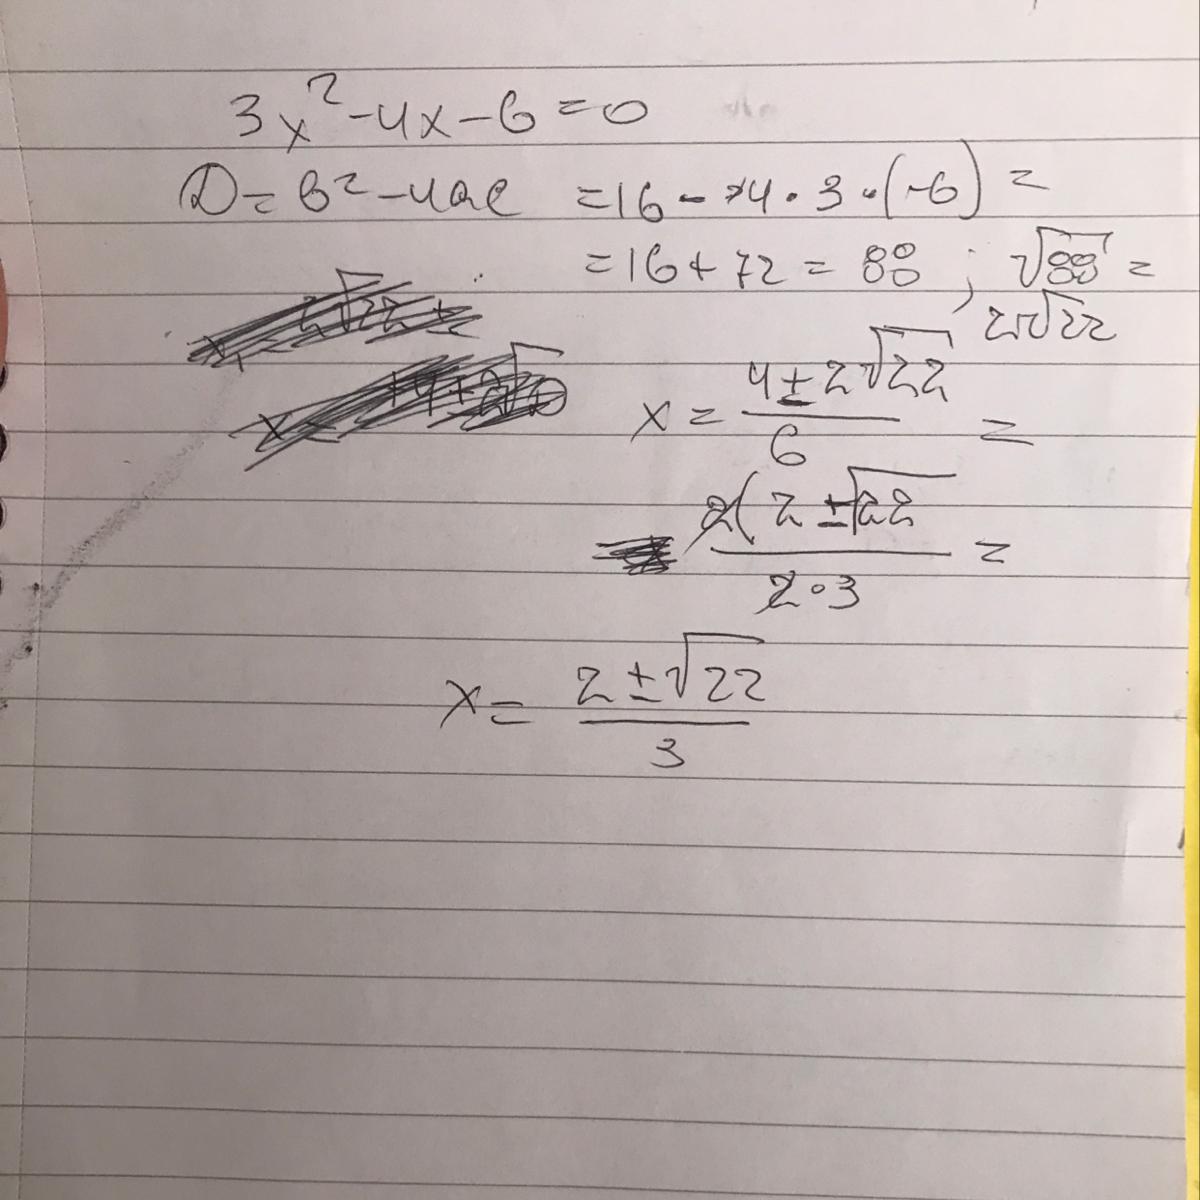 3x² - 4x - 6 = 0
D = b² - 4ac = 16 - 4 · 3 · (-6) =
= 16 + 72 = 88 ; √88 =
2√22
x = (4 ± 2√22)/6 =
2(2 ± √22/2·3 =
x = (2 ± √22)/3